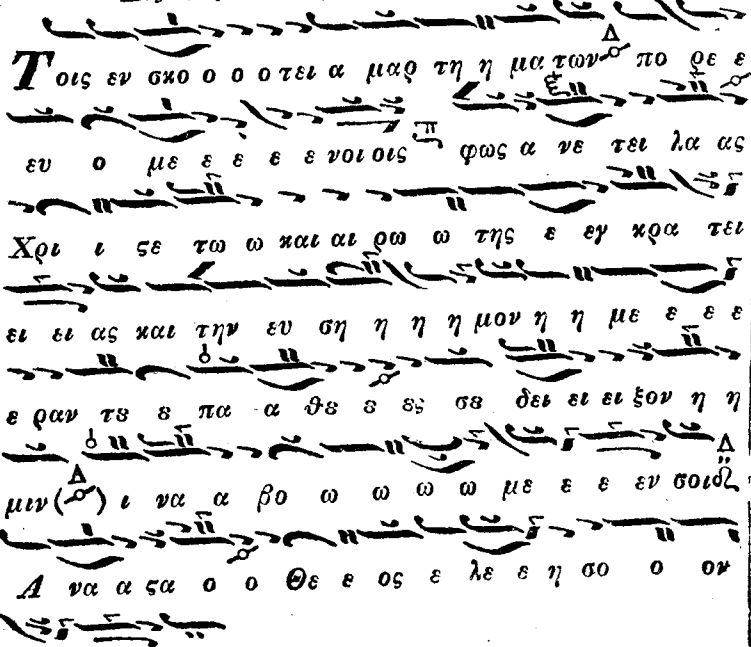 Τοις εν σκο ο ο ο τει α μαρ τη η μα των πο ρε ε
ευ ο με ε ε ε ε νοι οις φως α νε τει λα ας
Χρι ι ϛε τω ω και αι ρω ω της ε εγ κρα τει
ει ει ας και την ευ ση η η η μον η η με ε ε ε
ε ραν τε ε πα α θε ε ες σε δει ει ει ξον η η
μιν ( ) ι να α βο ω ω ω ω με ε ε εν σοι
Α να α ϛα ο ο Θε ε ος ε λε ε η σο ο ον